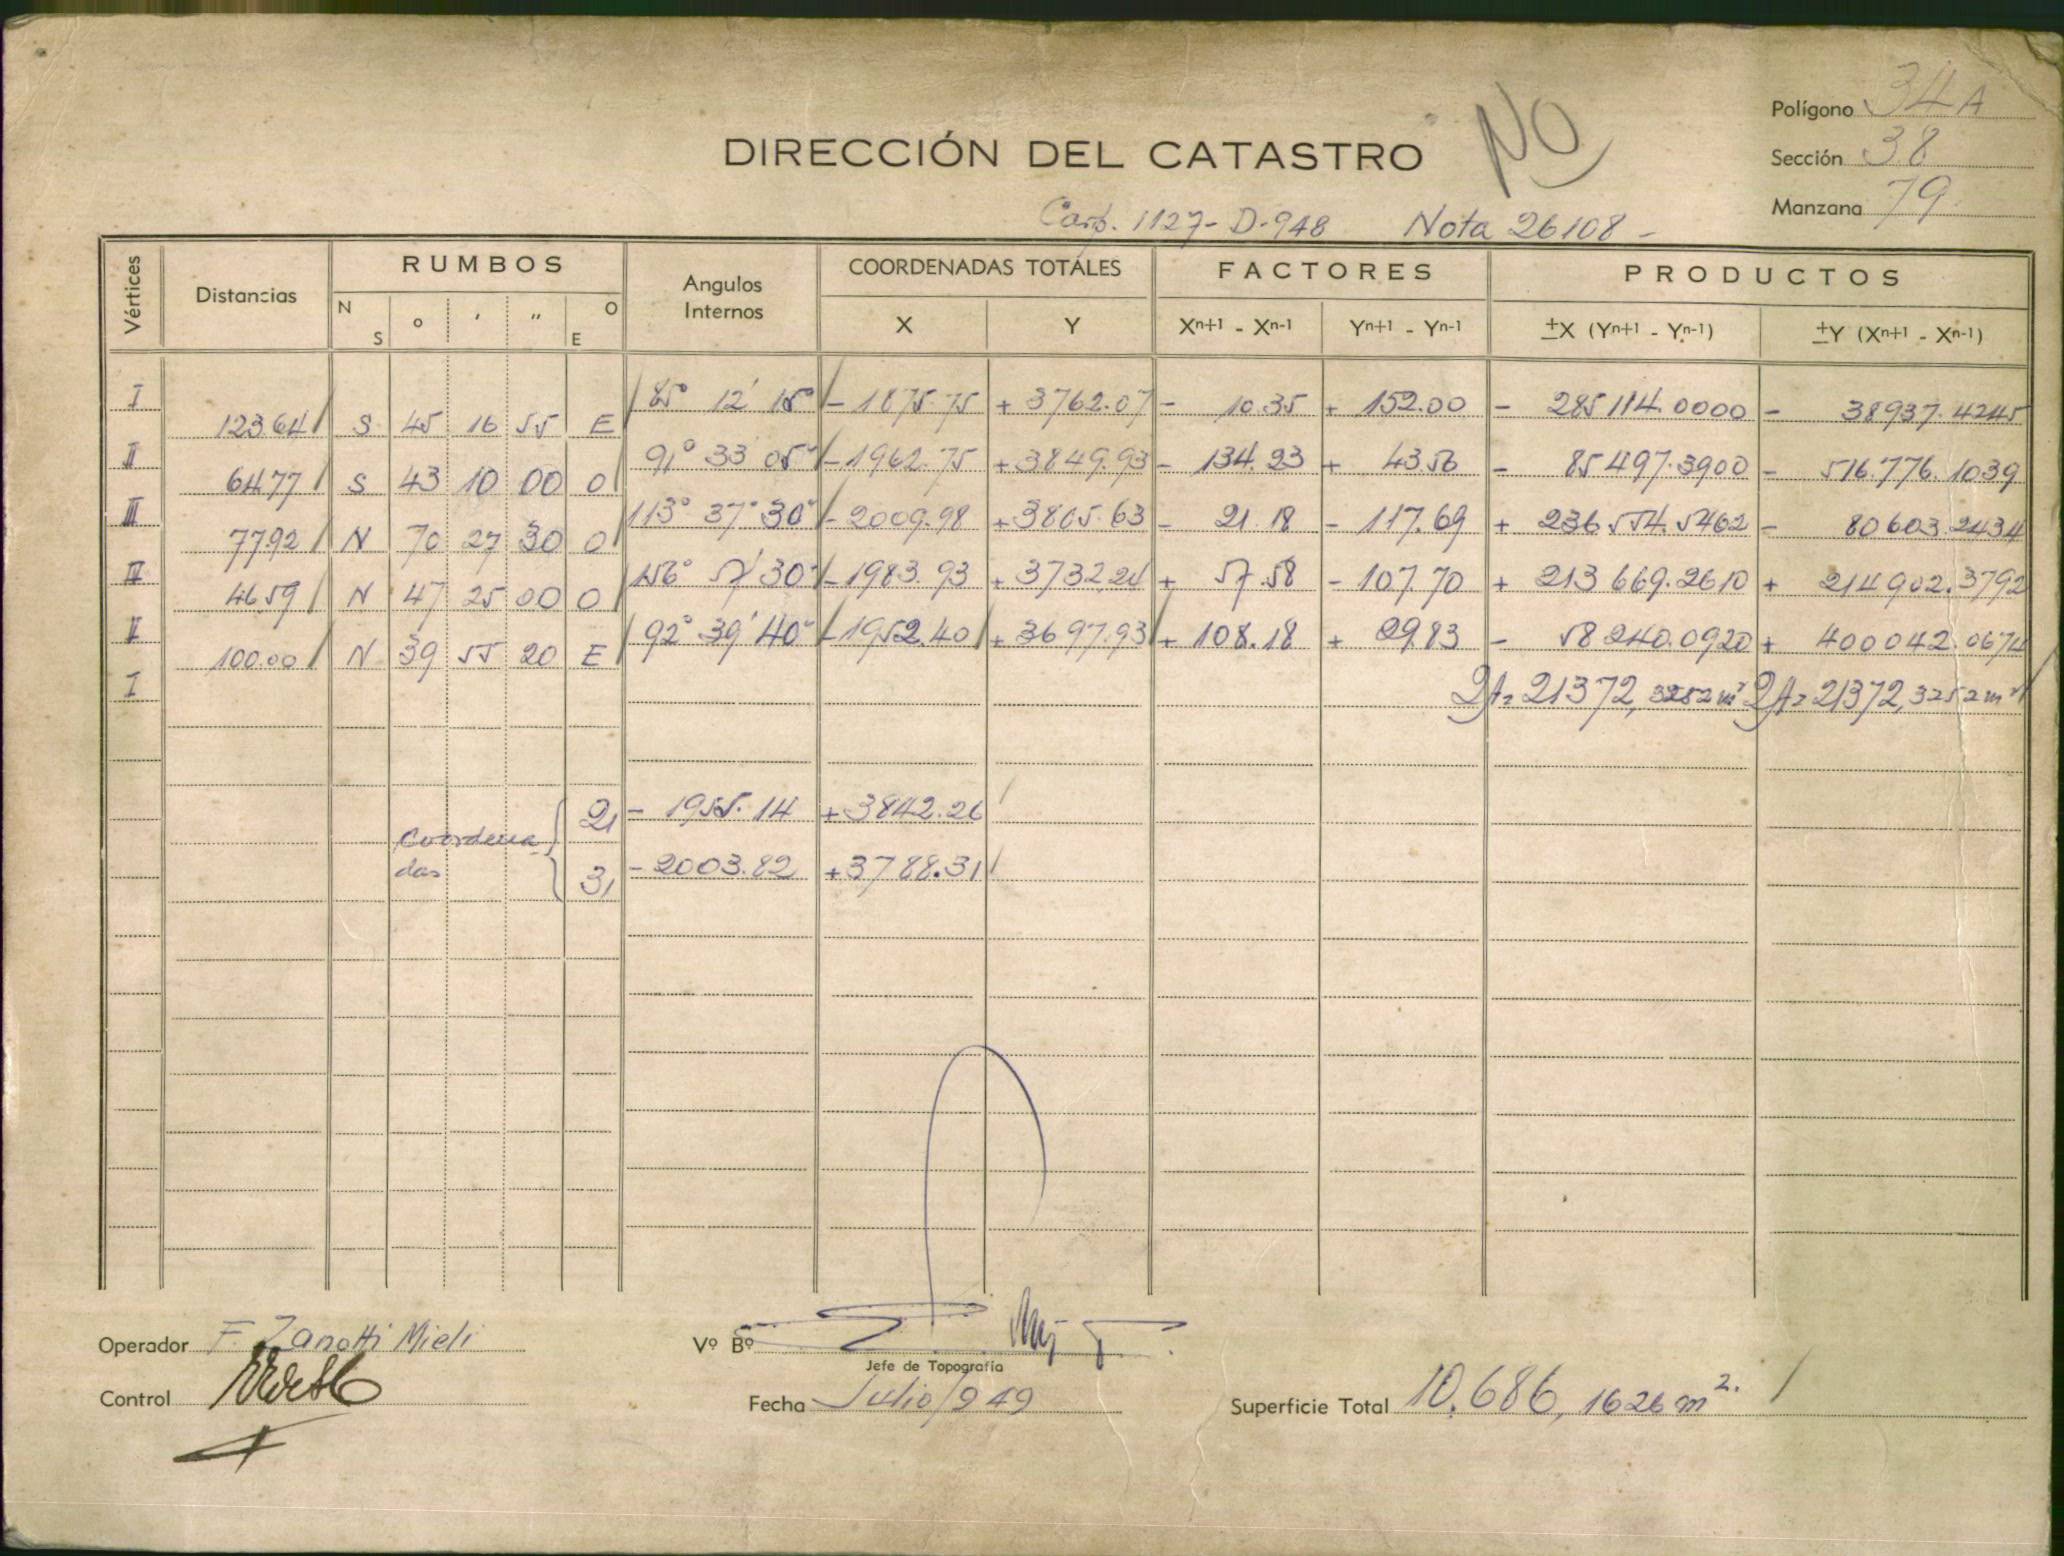 Polígono 34 A
DIRECCIÓN DEL CATASTRO NO
Sección 38
Manzana 79
Carp. 1127-D-948 Nota 26108 -
Vértices Distancias RUMBOS Angulos Internos COORDENADAS TOTALES FACTORES PRODUCTOS
N S ° ' " O E X Y Xn+1 - Xn-1 Yn+1 - Yn-1 ±X (Yn+1 - Yn-1) ±Y (Xn+1 - Xn-1)
I 85° 12' 15" - 1875.75 + 3762.07 - 10.35 + 152.00 - 285114.0000 - 38937.4245
123.64 S 45 16 55 E
II 91° 33' 05" - 1962.75 + 3849.93 - 134.23 + 43.56 - 85497.3900 - 516.776.1039
64.77 S 43 10 00 O
III 113° 37' 30" - 2009.98 + 3805.63 - 21.18 - 117.69 + 236554.5462 - 80603.2434
77.92 N 70 27 30 O
IV 156° 57' 30" - 1983.93 + 3732.24 + 57.58 - 107.70 + 213669.2610 + 214902.3792
46.59 N 47 25 00 O
V 92° 39' 40" - 1952.40 + 3697.93 + 108.18 + 29.83 - 58240.0920 + 400042.0674
100.00 N 39 55 20 E
I 2A = 21372,3252 m² 2A = 21372,3252 m²
2, - 1955.14 + 3842.26
Coordena
das
3, - 2003.82 + 3788.31
Operador F. Zanotti Mieli
Vº Bº
Jefe de Topografía
Control
Fecha Julio/949
Superficie Total 10.686,1626 m².